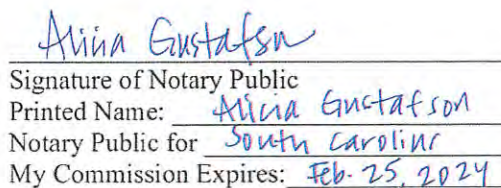 Alicia Gustafson
Signature of Notary Public
Printed Name: Alicia Gustafson
Notary Public for South Carolina
My Commission Expires: Feb. 25, 2024